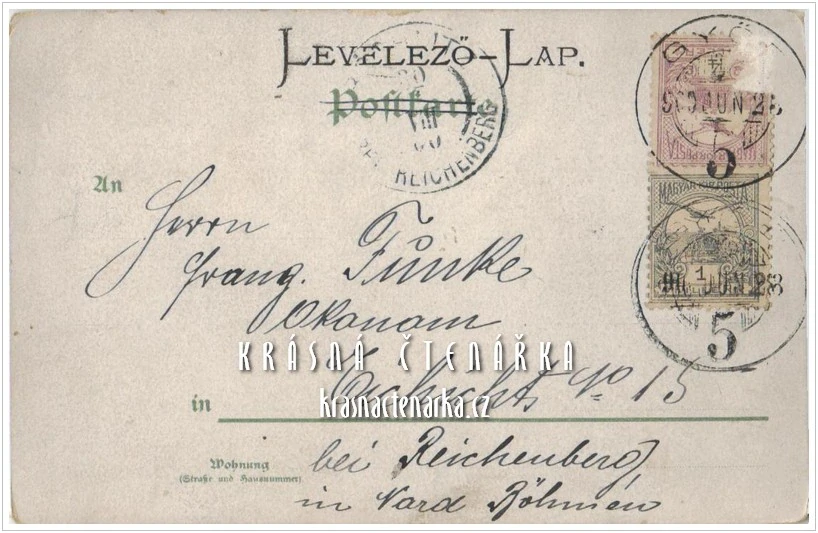 LEVELEZŐ-LAP.
Postkarte
REICHENBERG
GYŐR
900 JUN 28
5
MAGYAR KIR. POSTA
1
JUN 28
5
An
Herrn
Franz. Funke
Okonom
KRÁSNÁ ČTENÁŘKA
No 15
krasnactenarka.cz
in
Wohnung
(Straße und Hausnummer)
bei Reichenberg,
in Nord Böhmen